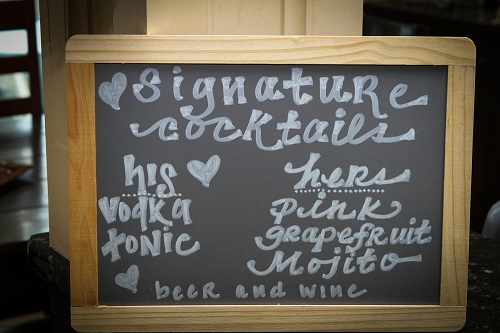 Signature
cocktails
his
vodka
tonic
hers
pink
grapefruit
Mojito
beer and wine